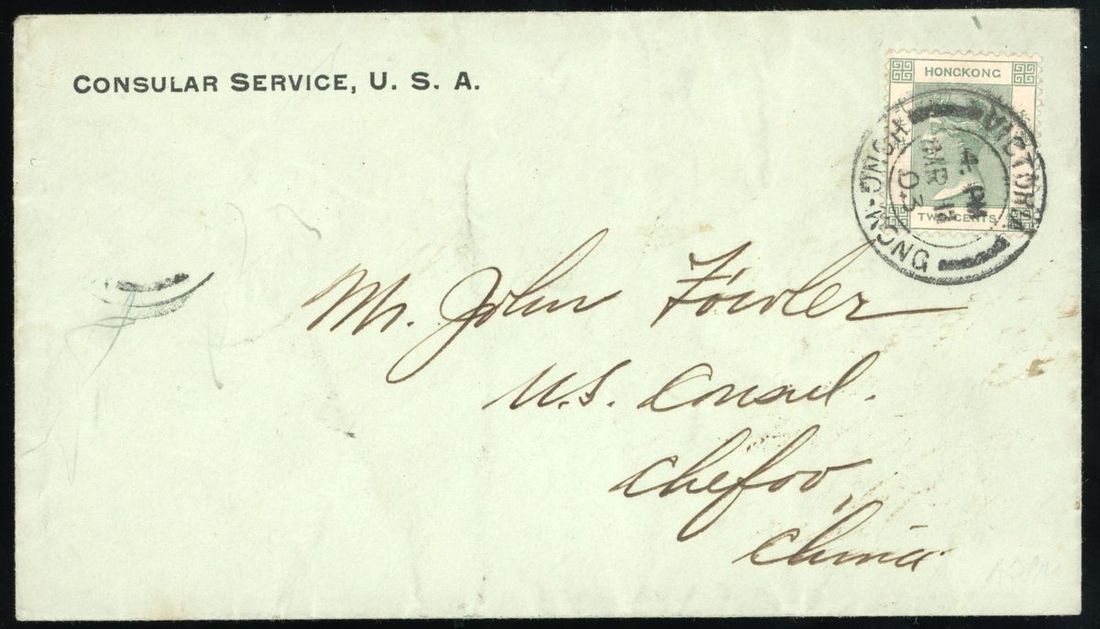 CONSULAR SERVICE, U. S. A.
HONGKONG
TWO CENTS
VICTORIA
HONG-KONG
4. PM
MR 11
03
Mr. John Fowler
U.S. Consul.
Chefoo,
China